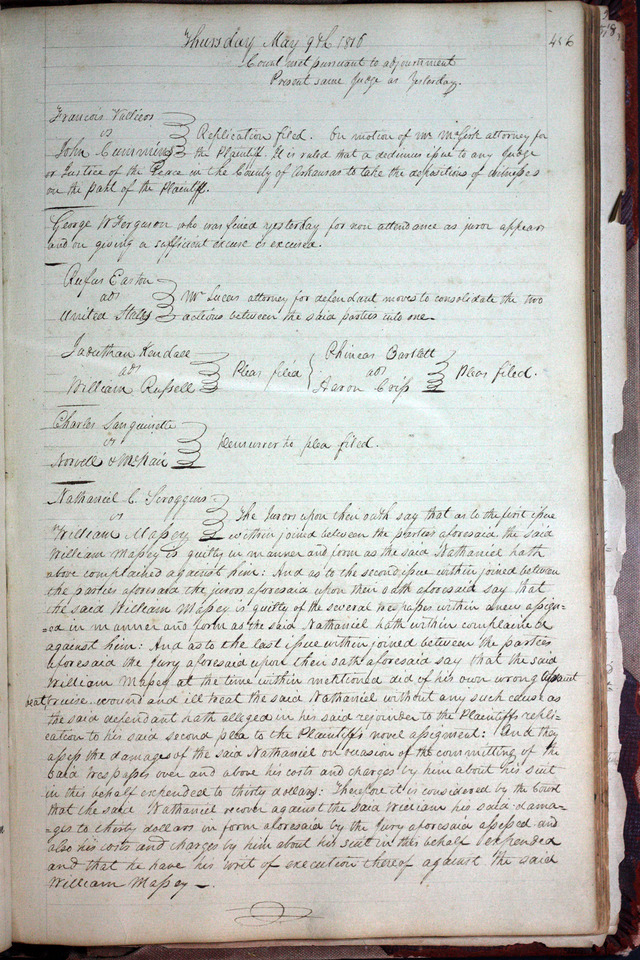 Thursday May 9th 1816
456
Court met pursuant to adjournment
Present same Judge as Yesterday.
Francois
vs
John Cummins
Replication filed. On motion of Mr McGirk attorney for
the Plaintiff. It is ruled that a dedimus issue to any Judge
or Justice of the Peace in the County of Arkansas to take the depositions of witnesses
on the part of the Plaintiff.
George W Ferguson who was fined yesterday for non attendance as juror appears
and on giving a sufficient excuse is excused.
Rufus Easton
ads
United States
Mr Lucas attorney for defendant moves to consolidate the two
actions between the said parties into one
Kendall
ads
William Russell
Pleas filed
Phineas Bartlett
ads
Aaron
Pleas filed.
Charles Sanguinette
vs
Norvell & McNair
Demurrer to plea filed.
Nathaniel C. Scroggins
vs
William Massey
The Jurors upon their oath say that as to the first issue
within joined between the parties aforesaid, the said
William Massey is guilty in manner and form as the said Nathaniel hath
above complained against him: And as to the second issue within joined between
the parties aforesaid the jurors aforesaid upon their oath aforesaid say that
the said William Massey is guilty of the several trespasses within anew assign-
=ed in manner and form as the said Nathaniel hath within complained
against him: And as to the last issue within joined between the parties
aforesaid the Jury aforesaid upon their oath aforesaid say that the said
William Massey at the time within mentioned did of his own wrong assault
beat, bruise wound and ill treat the said Nathaniel without any such cause as
the said defendant hath alleged in his said rejoinder to the Plaintiffs repli-
cation to his said second plea to the Plaintiffs novel assignment: And they
assess the damages of the said Nathaniel on occasion of the committing of the
said trespasses over and above his costs and charges by him about his suit
in this behalf expended to thirty dollars: Therefore it is considered by the Court
that the said Nathaniel recover against the said William his said dama-
=ges to thirty dollars in form aforesaid by the Jury aforesaid assessed and
also his costs and charges by him about his suit in this behalf expended
and that he have his writ of execution thereof against the said
William Massey —.